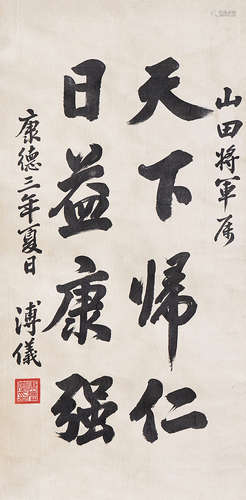 山田将軍属
天下帰仁
日益康强
康德三年夏日
溥儀